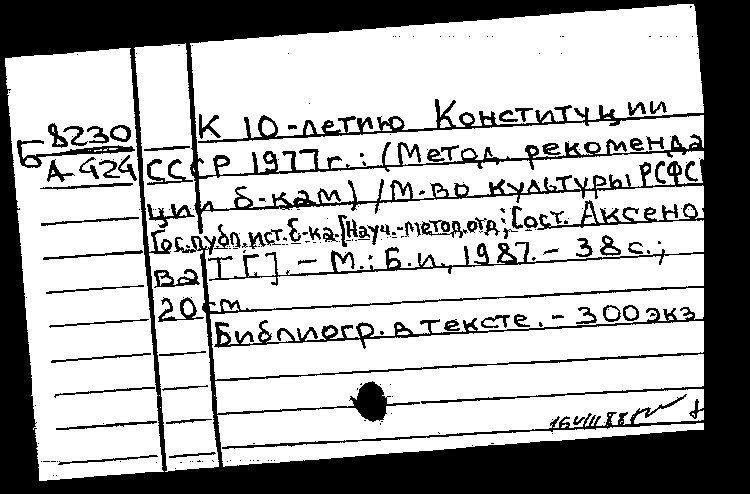 Б 8230
А-424
К 10-летию Конституции
СССР 1977г.: (Метод. рекоменда
ции б-кам) / М-во культуры РСФС
Гос. публ. ист. б-ка. [Науч.-метод. отд; Сост. Аксено
ва Т.Г.]. – М.: Б.и., 1987. – 38с.;
20см.
Библиогр. в тексте. – 300экз